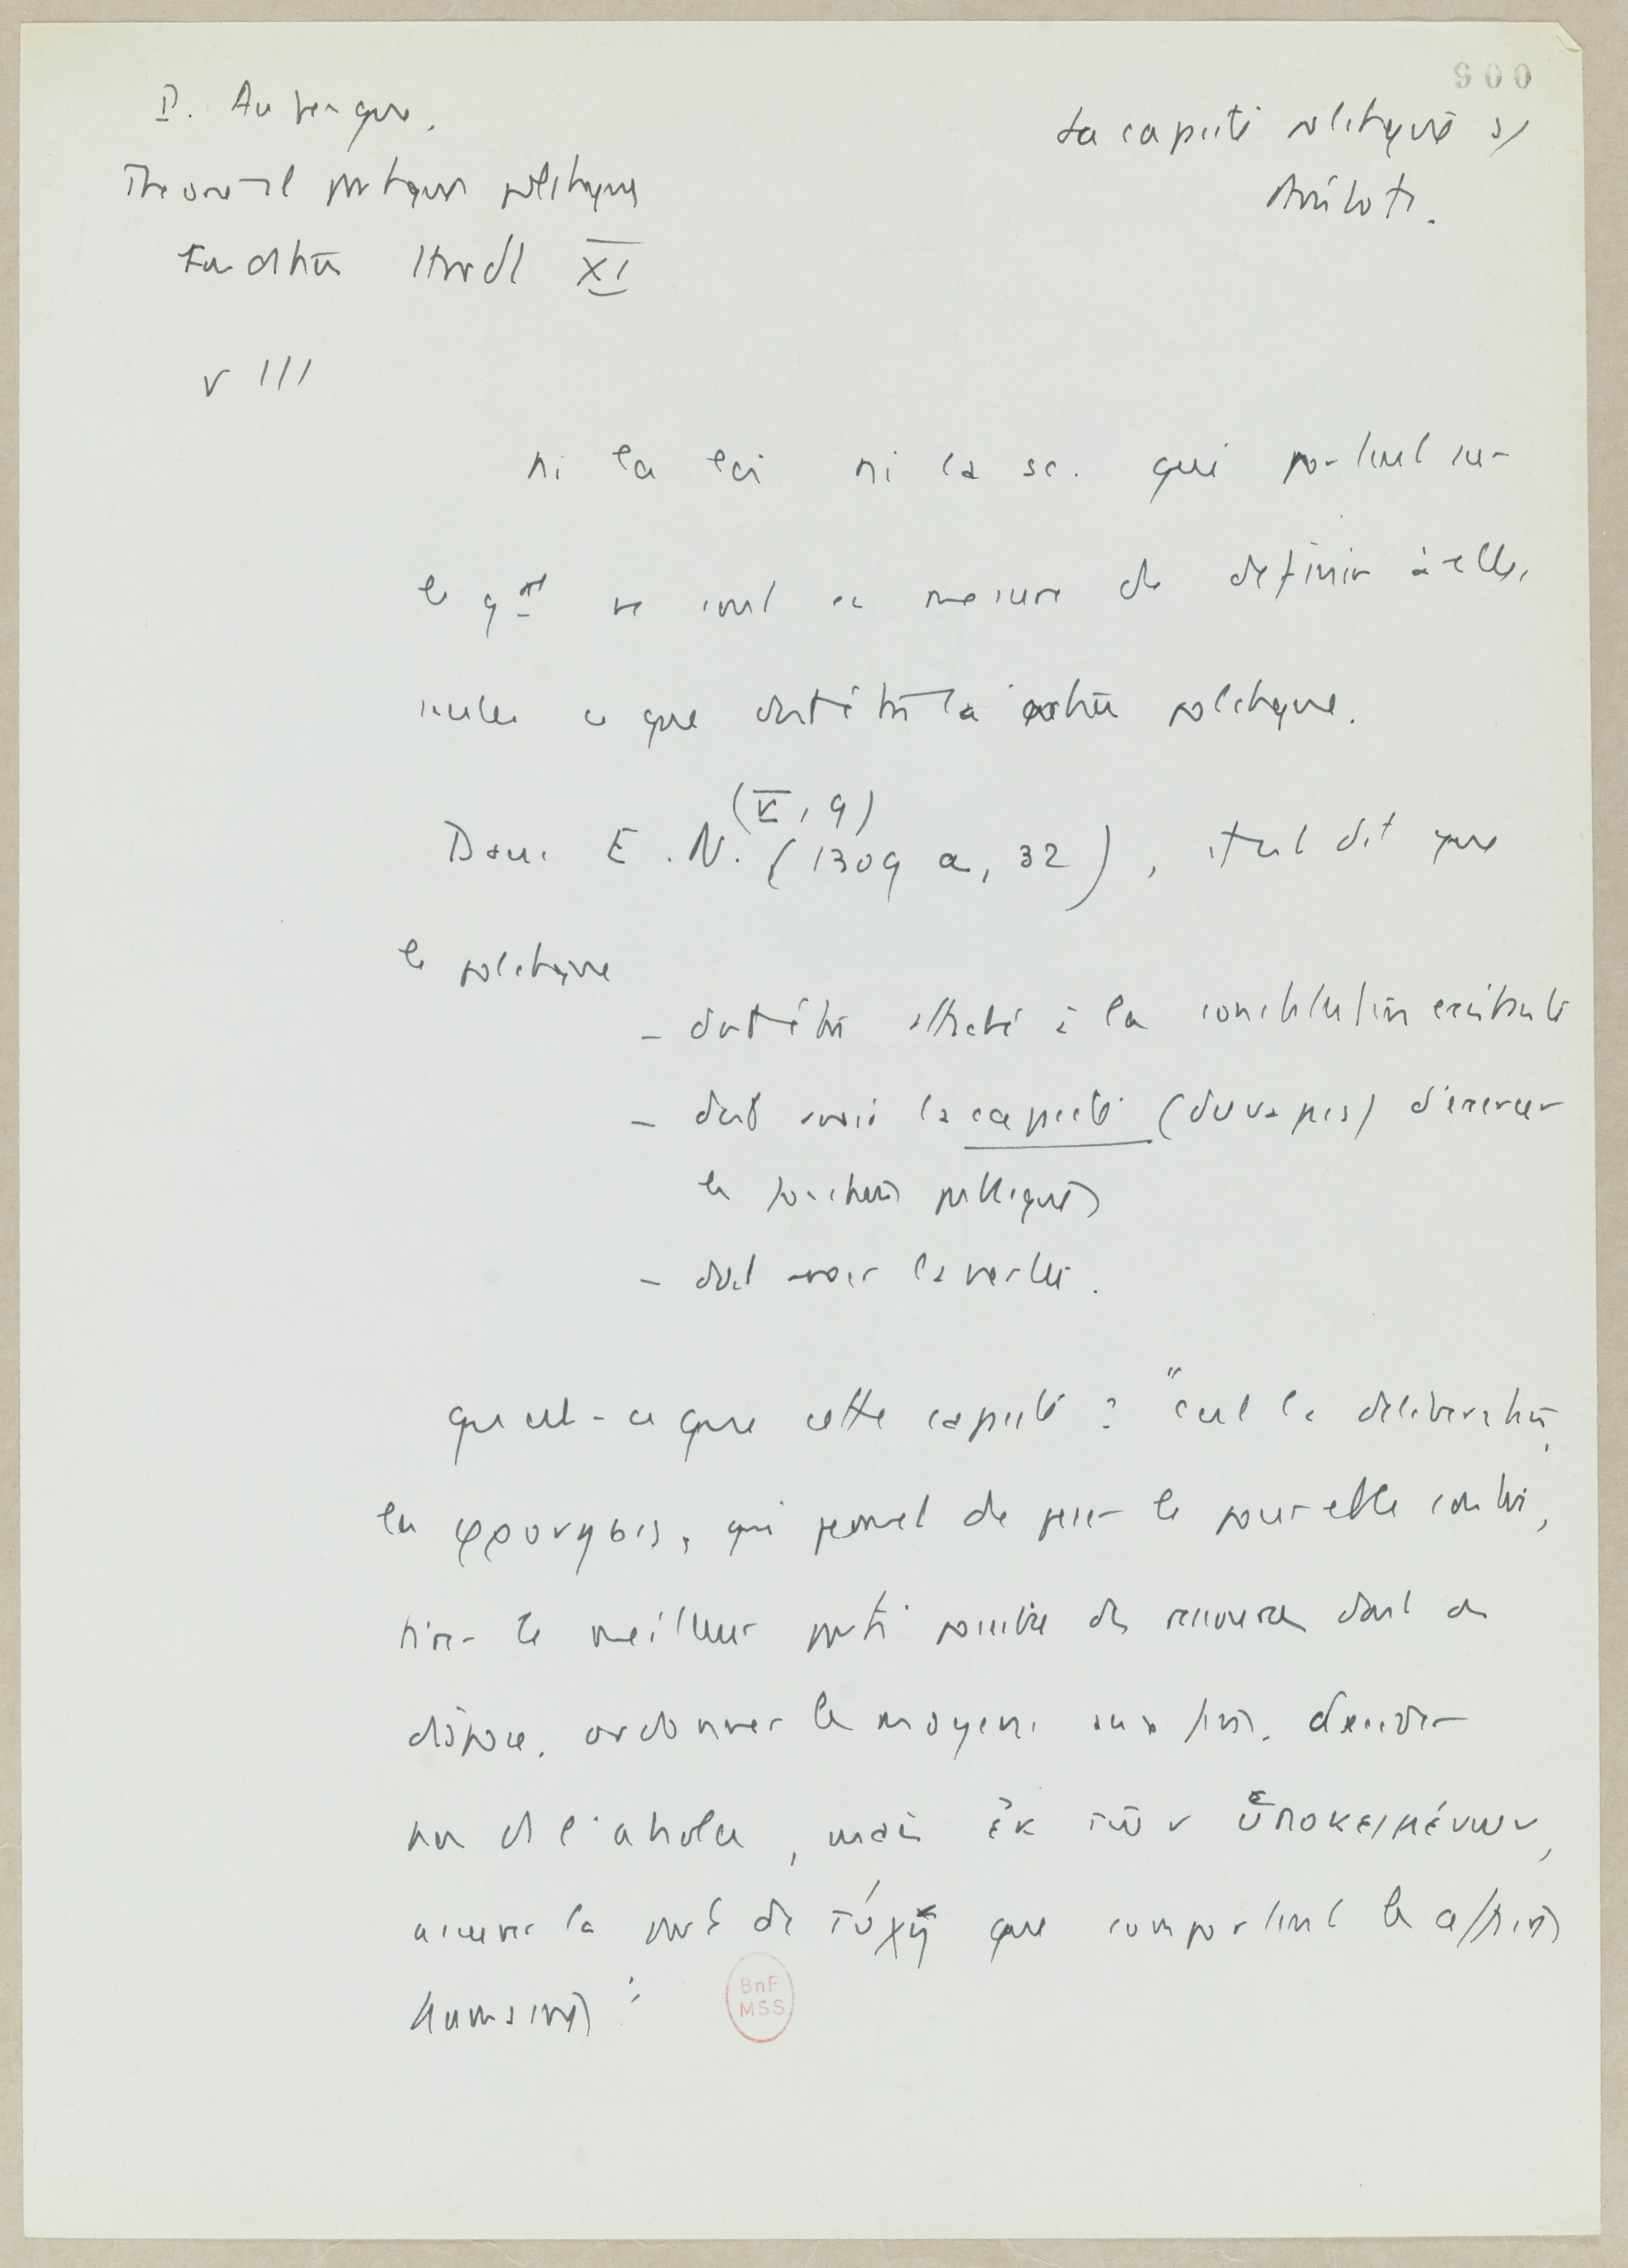 900
P. Aubenque.
La capacité politique s/
Aristote.
Théorie et pratique politiques
Fondation Hardt XI
V III
ni la loi ni la sc. qui portent sur
le gal ne sont en mesure de définir à elles
seules ce que doit être la action politique.
(V, 9)
Dans E.N. (1309 a, 32), il est dit que
le politique
- doit être attaché à la constitution existante
- doit avoir la capacité (δυναμις) d'exercer
les fonctions publiques
- doit avoir la vertu.
qu'est-ce que cette capacité ? "c'est la délibération,
la φρονησις, qui permet de peser le pour et le contre,
tirer le meilleur parti possible des ressources dont on
dispose, ordonner les moyens aux fins, décider
non de l'absolu, mais ἐκ τῶν ὑποκειμένων,
assumer la part de τύχη que comportent les affaires
humaines"
BnF
MSS